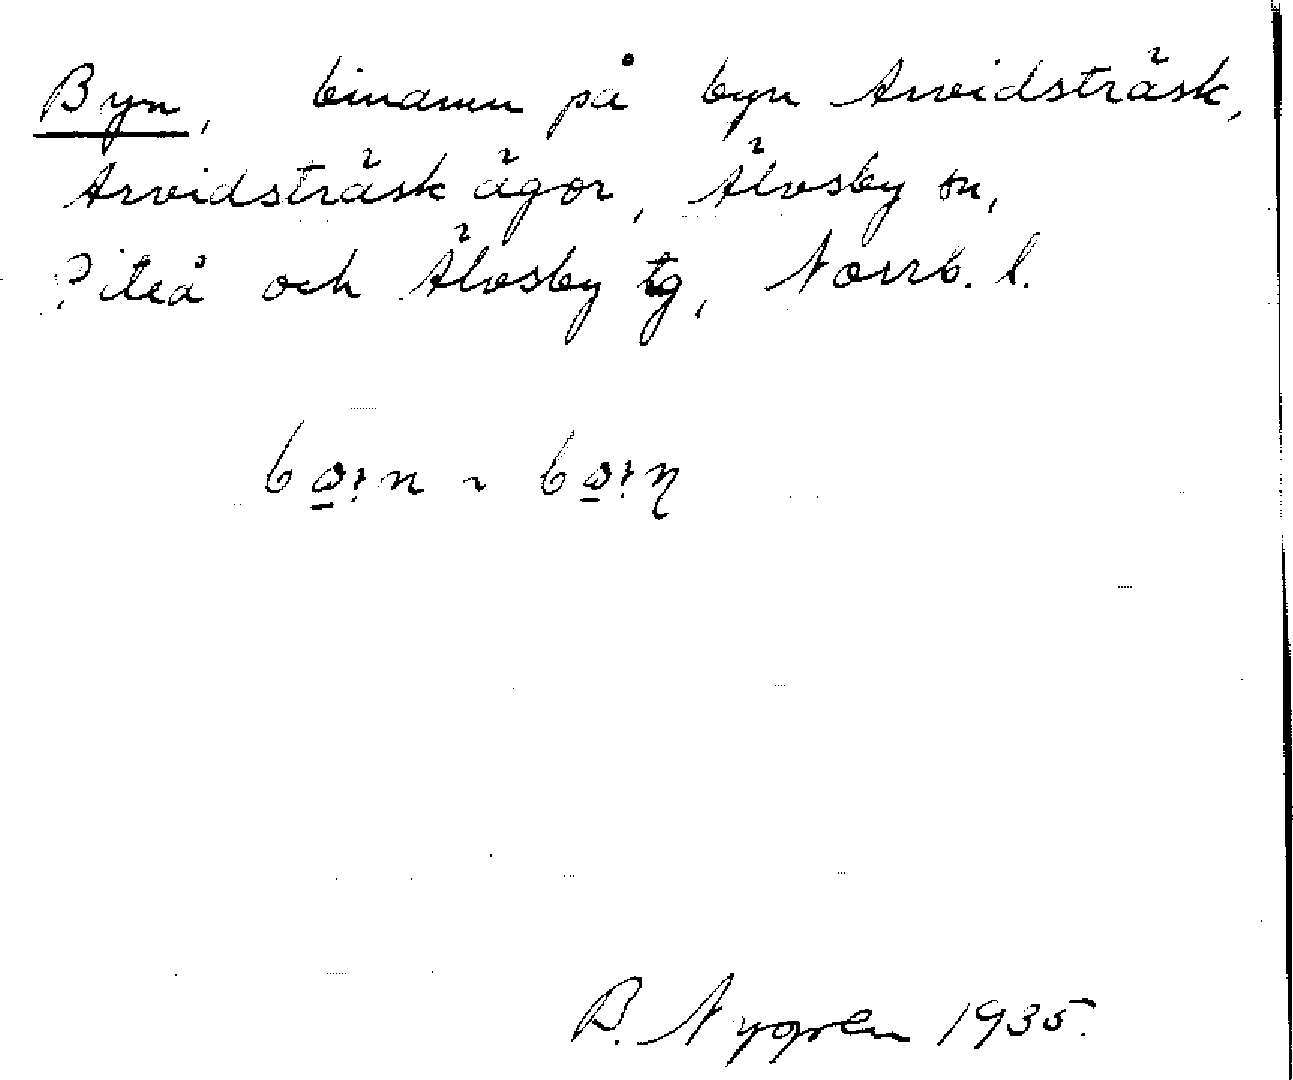 Byn, binamn på byn Arvidsträsk,
Arvidsträsk ägor, Älvsby sn,
Piteå och Älvsby tg, Norrb. l.
B. Nygren 1935.